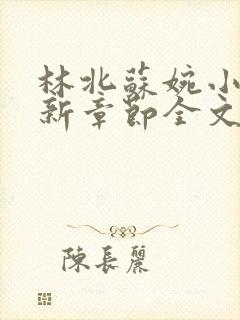 林北蘇婉小
新章節全文
陳長麗